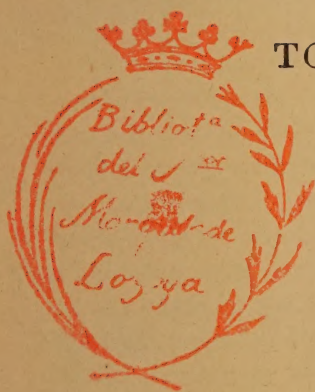 TO
Bibliot.ª
del S.or
Marqués de
Lozoya